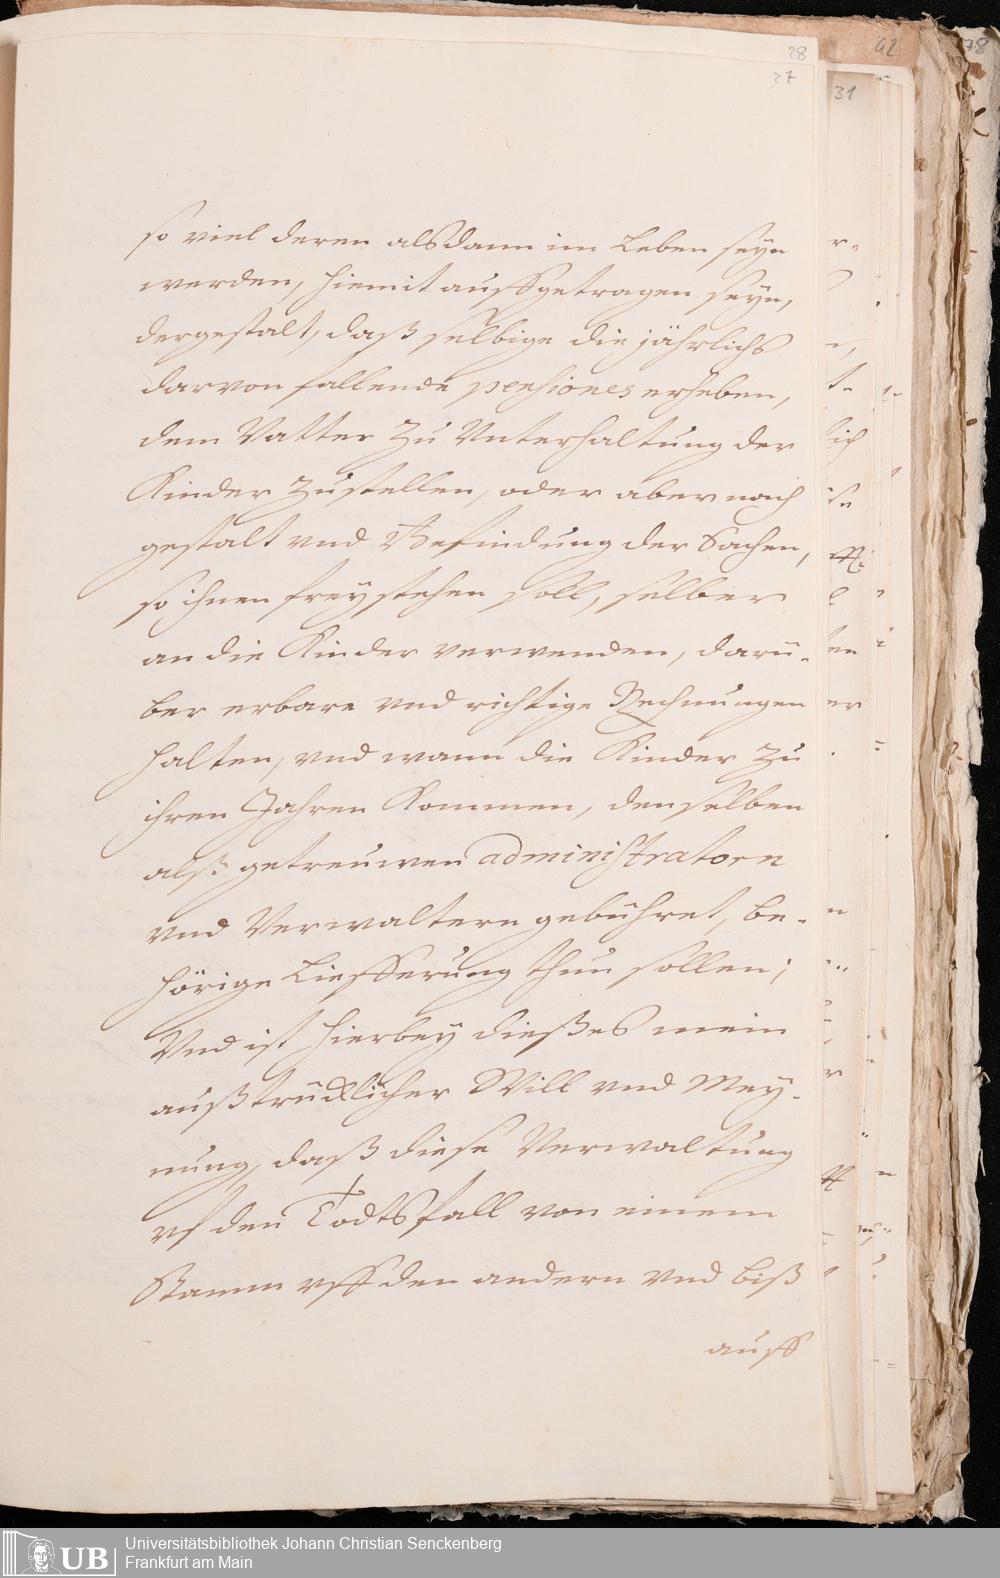 28
27
42
78
31
so viel deren alsdann im Leben seyn
werden, hiemit auffgetragen seyn,
dergestalt, daß selbige die jährlichs
darvon fallende pensiones erheben,
dem Vatter zu Vnterhaltung der
Kinder zustellen, oder aber nach
gestalt vnd Befindung der Sachen,
so ihnen frey stehen soll, selber
an die Kinder verwenden, darü-
ber erbare vnd richtige Rechnungen
halten, vnd wann die Kinder zu
ihren Jahren Kommen, denselben
alß getreuwen administratorn
vnd Verwaltern gebühret, be-
hörige Liefferung thun sollen;
Vnd ist hierbey dießes mein
außtrücklicher Will vnd Mey-
nung, daß diese Verwaltung
vf den Todtsfall von einem
Stamm vff den andern vnd biß
auff
UB
Universitätsbibliothek Johann Christian Senckenberg
Frankfurt am Main